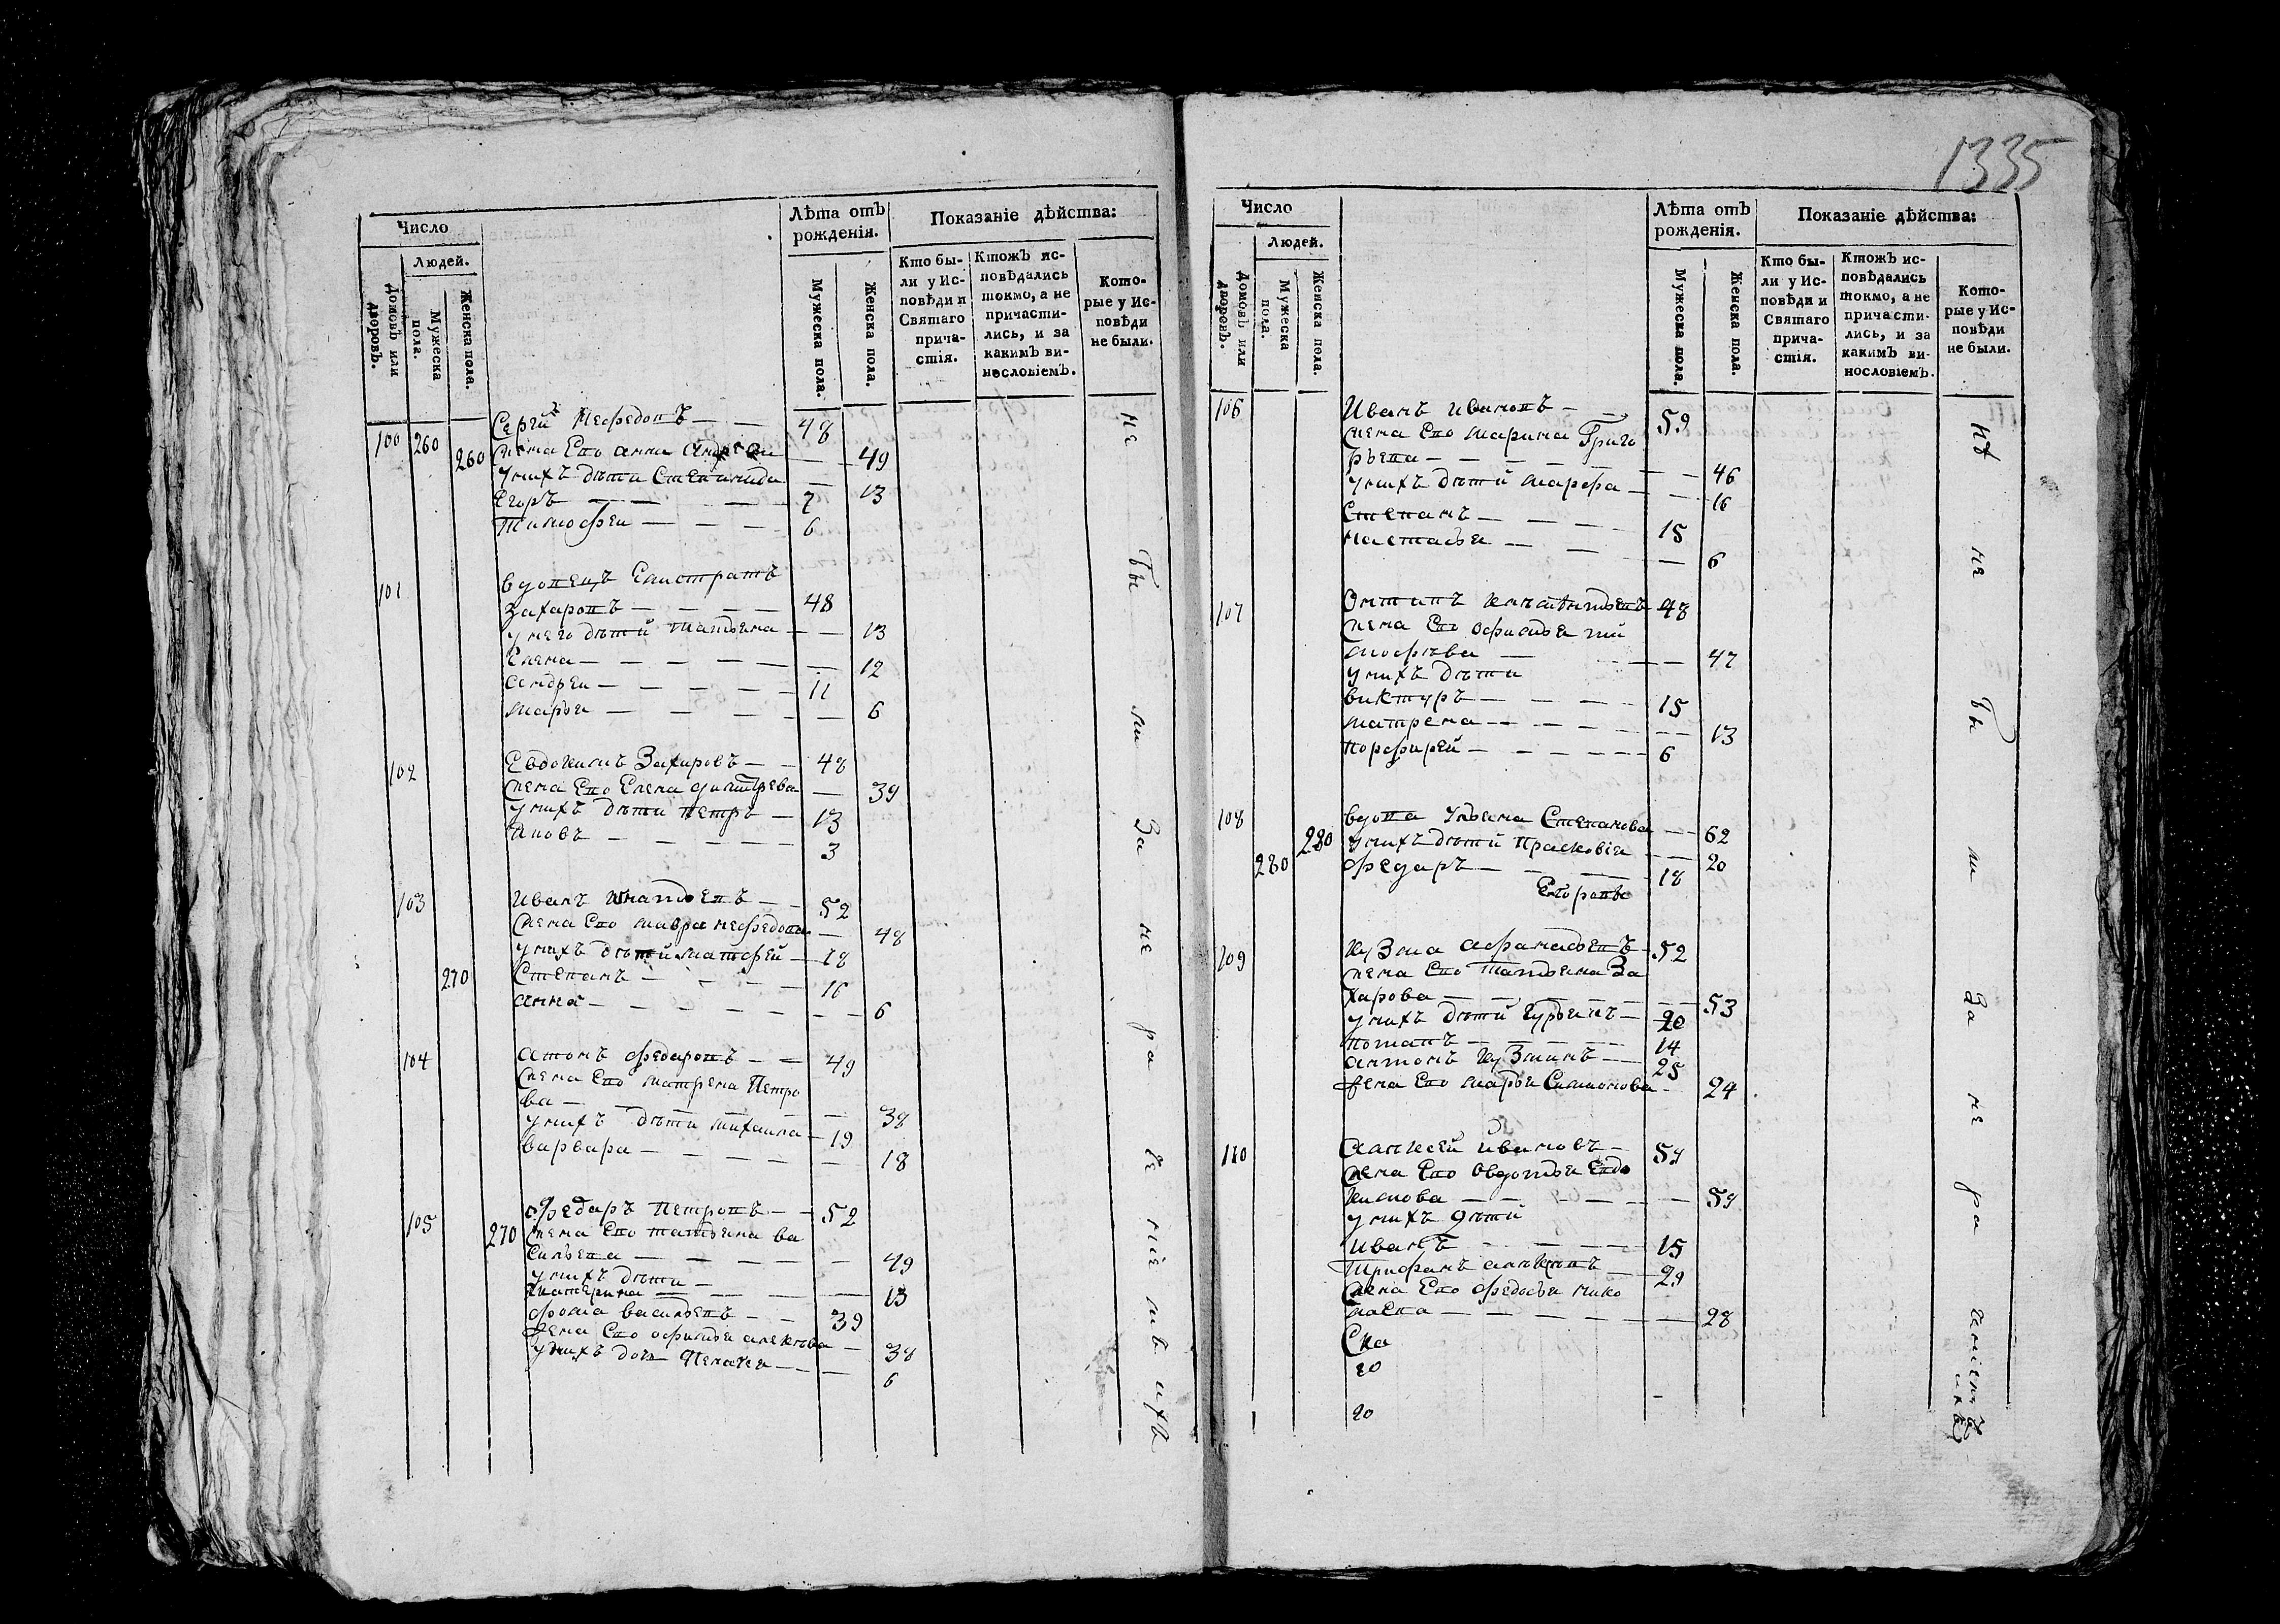 Число
Людей.
Домовъ или дворовъ.
Мужеска пола.
Женска пола.
Лѣта отъ рожденія.
Мужеска пола.
Женска пола.
Показаніе дѣйства:
Кто бы-
ли у Ис-
повѣди и
Святаго
прича-
стія.
Ктожъ ис-
повѣдались
токмо, а не
причасти-
лись, и за
какимъ ви-
нословіемъ.
Кото-
рые у Ис-
повѣди
не были.
100 260 260 Сергей Нефедовъ 48
жена Ево анна 49
у нихъ дѣти Степанида 13
Егоръ 7
Тимофеи 6
101 вдовецъ Елистратъ
Захаровъ 48
у него дѣтй татьяна 13
Елена 12
андреи 11
марья 6
102 Евдокимъ Захаровъ 48
жена Ево Елена дмитрева 39
у нихъ дѣти петръ 13
яковъ 3
103 иванъ игнатьевъ 52
жена Ево мавра нефедова 48
у нихъ дѣтй матфей 18
270 Степанъ 16
анна 6
104 федаровъ 49
жена Ево матрена Петро
ва 38
у нихъ дѣти михаила 19
варвара 18
105 270 федаръ Петровъ 52
жена Ево татьяна ва
сильева 49
у нихъ дѣти
катерина 13
фома васильевъ 39
жена Ево офимья алексѣва 38
у нихъ дочь Пелагея 6
не бы ли За не ра че ніе мъ ихъ
1335
Число
Людей.
Домовъ или дворовъ.
Мужеска пола.
Женска пола.
Лѣта отъ рожденія.
Мужеска пола.
Женска пола.
Показаніе дѣйства:
Кто бы-
ли у Ис-
повѣди и
Святаго
прича-
стія.
Ктожъ ис-
повѣдались
токмо, а не
причасти-
лись, и за
какимъ ви-
нословіемъ.
Кото-
рые у Ис-
повѣди
не были.
106 Иванъ ивановъ 59
жена Ево марина Григо
рьева 46
у нихъ дѣтй марфа 16
Степанъ 15
настасья 6
107 Онтипъ игнатьевъ 48
жена Ево офимья ти
мофѣва 47
у нихъ дѣти
виктуръ 15
матрена 13
Порфирей 6
108 вдова ульяна Степанова 62
280 у нихъ дѣтй Прасковія 20
280 федаръ 18
Егоровы
109 Кузма афанасьевъ 52
жена Ево татьяна За
харова 53
у нихъ дѣтй гурьянъ 20
потапъ 14
антонъ Кузминъ 25
жена Ево марья Симионова 24
110 Алексей ивановъ 59
жена Ево Овдотья Евдо
кимова 59
у нихъ дѣтй
иванъ 15
Трифанъ 29
жена Ево федосья нико
лаева 28
20
20
не бы ли За не ра ченіемъ
ихъ